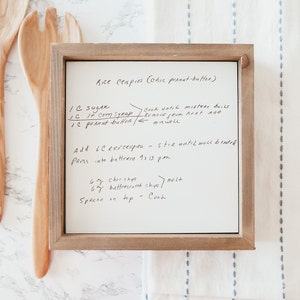 Rice Crispies (Choc peanut-butter)
1 C sugar
1 C lt corn syrup
1 C peanut butter
Cook until mixture boils
Remove from heat Add
Add 6C ricecrispies - Stir until well blended
Press into buttered 9x13 pan
6 oz choc chips
6 oz butterscotch chips
melt
Spread on top - Cool